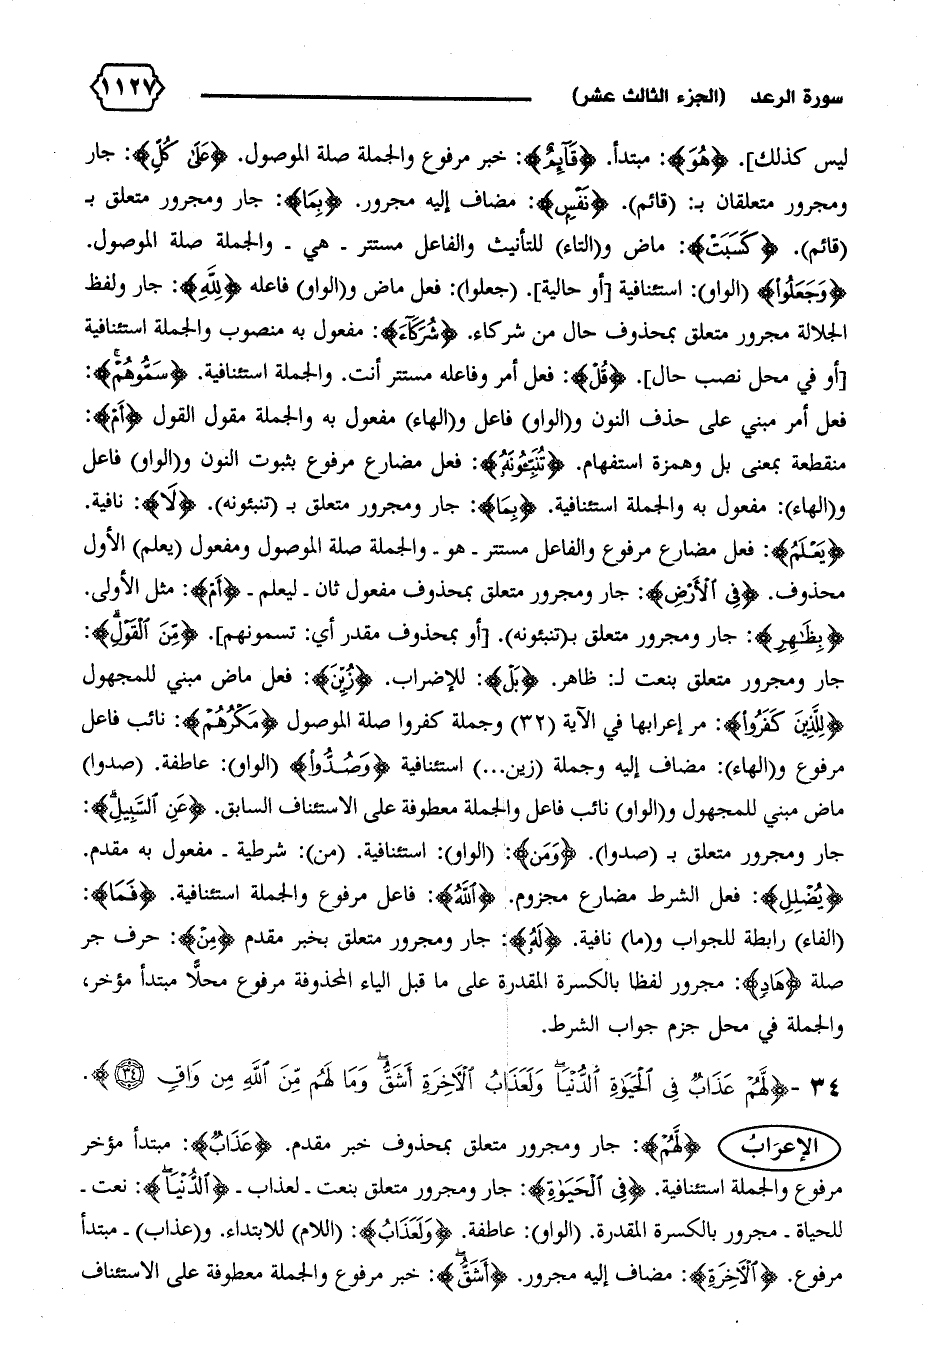 سورة الرعد (الجزء الثالث عشر)
١١٢٧
ليس كذلك]. ﴿هُوَ﴾: مبتدأ. ﴿قَآئِمٌ﴾: خبر مرفوع والجملة صلة الموصول. ﴿عَلَىٰ كُلِّ﴾: جار
ومجرور متعلقان بـ: (قائم). ﴿نَفْسٍۭ﴾: مضاف إليه مجرور. ﴿بِمَا﴾: جار ومجرور متعلق بـ
(قائم). ﴿كَسَبَتْۗ﴾: ماض و(التاء) للتأنيث والفاعل مستتر ـ هي ـ والجملة صلة الموصول.
﴿وَجَعَلُوا۟﴾ (الواو): استئنافية [أو حالية]. (جعلوا): فعل ماض و(الواو) فاعله ﴿لِلَّهِ﴾: جار ولفظ
الجلالة مجرور متعلق بمحذوف حال من شركاء. ﴿شُرَكَآءَ﴾: مفعول به منصوب والجملة استئنافية
[أو في محل نصب حال]. ﴿قُلْ﴾: فعل أمر وفاعله مستتر أنت. والجملة استئنافية. ﴿سَمُّوهُمْۚ﴾:
فعل أمر مبني على حذف النون و(الواو) فاعل و(الهاء) مفعول به والجملة مقول القول ﴿أَمْ﴾:
منقطعة بمعنى بل وهمزة استفهام. ﴿تُنَبِّـُٔونَهُۥ﴾: فعل مضارع مرفوع بثبوت النون و(الواو) فاعل
و(الهاء): مفعول به والجملة استئنافية. ﴿بِمَا﴾: جار ومجرور متعلق بـ (تنبئونه). ﴿لَا﴾: نافية.
﴿يَعْلَمُ﴾: فعل مضارع مرفوع والفاعل مستتر ـ هو ـ والجملة صلة الموصول ومفعول (يعلم) الأول
محذوف. ﴿فِى ٱلْأَرْضِ﴾: جار ومجرور متعلق بمحذوف مفعول ثان ـ ليعلم ـ ﴿أَم﴾: مثل الأولى.
﴿بِظَٰهِرٍ﴾: جار ومجرور متعلق بـ(تنبئونه). [أو بمحذوف مقدر أي: تسمونهم]. ﴿مِّنَ ٱلْقَوْلِۗ﴾:
جار ومجرور متعلق بنعت لـ: ظاهر. ﴿بَلْ﴾: للإضراب. ﴿زُيِّنَ﴾: فعل ماض مبني للمجهول
﴿لِلَّذِينَ كَفَرُوا۟﴾: مر إعرابها في الآية (٣٢) وجملة كفروا صلة الموصول ﴿مَكْرُهُمْ﴾: نائب فاعل
مرفوع و(الهاء): مضاف إليه وجملة (زين...) استئنافية ﴿وَصُدُّوا۟﴾ (الواو): عاطفة. (صدوا)
ماض مبني للمجهول و(الواو) نائب فاعل والجملة معطوفة على الاستئناف السابق. ﴿عَنِ ٱلسَّبِيلِۗ﴾:
جار ومجرور متعلق بـ (صدوا). ﴿وَمَن﴾: (الواو): استئنافية. (من): شرطية ـ مفعول به مقدم.
﴿يُضْلِلِ﴾: فعل الشرط مضارع مجزوم. ﴿ٱللَّهُ﴾: فاعل مرفوع والجملة استئنافية. ﴿فَمَا﴾:
(الفاء) رابطة للجواب و(ما) نافية. ﴿لَهُۥ﴾: جار ومجرور متعلق بخبر مقدم ﴿مِنْ﴾: حرف جر
صلة ﴿هَادٍ﴾: مجرور لفظا بالكسرة المقدرة على ما قبل الياء المحذوفة مرفوع محلًّا مبتدأ مؤخر،
والجملة في محل جزم جواب الشرط.
٣٤ -﴿لَّهُمْ عَذَابٌ فِى ٱلْحَيَوٰةِ ٱلدُّنْيَاۖ وَلَعَذَابُ ٱلْـَٔاخِرَةِ أَشَقُّۖ وَمَا لَهُم مِّنَ ٱللَّهِ مِن وَاقٍ ٣٤﴾.
الإعرَابُ ﴿لَّهُمْ﴾: جار ومجرور متعلق بمحذوف خبر مقدم. ﴿عَذَابٌ﴾: مبتدأ مؤخر
مرفوع والجملة استئنافية. ﴿فِى ٱلْحَيَوٰةِ﴾: جار ومجرور متعلق بنعت ـ لعذاب ـ ﴿ٱلدُّنْيَاۖ﴾: نعت ـ
للحياة ـ مجرور بالكسرة المقدرة. (الواو): عاطفة. ﴿وَلَعَذَابُ﴾: (اللام) للابتداء. و(عذاب) ـ مبتدأ
مرفوع. ﴿ٱلْـَٔاخِرَةِ﴾: مضاف إليه مجرور. ﴿أَشَقُّۖ﴾: خبر مرفوع والجملة معطوفة على الاستئناف